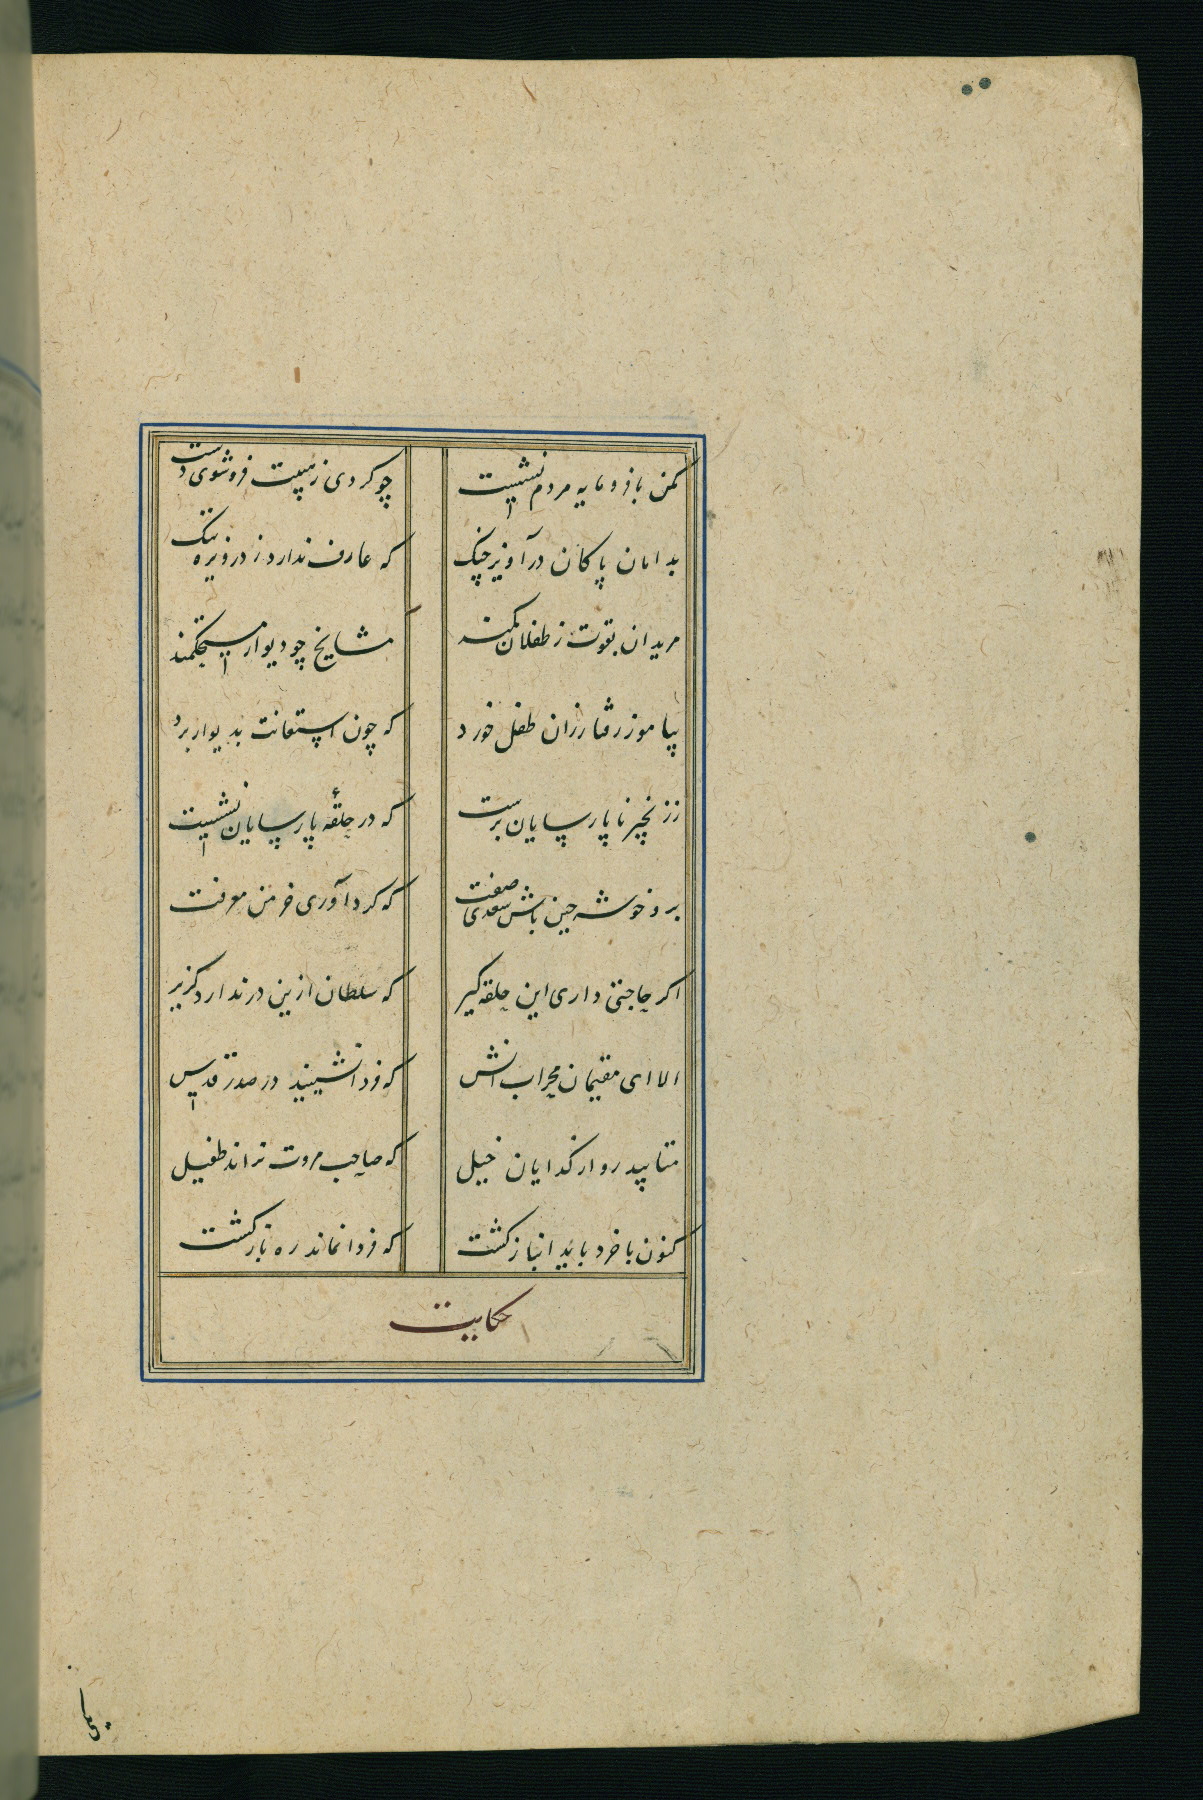 مکن با فرومایه مردم نشست چو کردی ز هیبت فروشوی دست
بدامان پاکان درآویز چنک که عارف ندارد ز دریوزه ننک
مریدان بقوت ز طفلان کمند مشایخ چو دیوار مستحکمند
بیاموز رفتار زان طفل خورد که چون استعانت بدیوار برد
ز زنجیر ناپارسایان برست که در حلقهٔ پارسایان نشست
برو خوشه چین باش سعدی صفت که کرد آوری خرمن معرفت
اکر حاجتی داری این حلقه کیر که سلطان ازین در ندارد کزیر
الا ای مقیمان محراب انس که فردا نشینید در صدر قدس
متابید رو از کدایان خیل که صاحب مروت نراند طفیل
کنون با خرد باید انباز کشت که فردا نماند ره باز کشت
حکایت